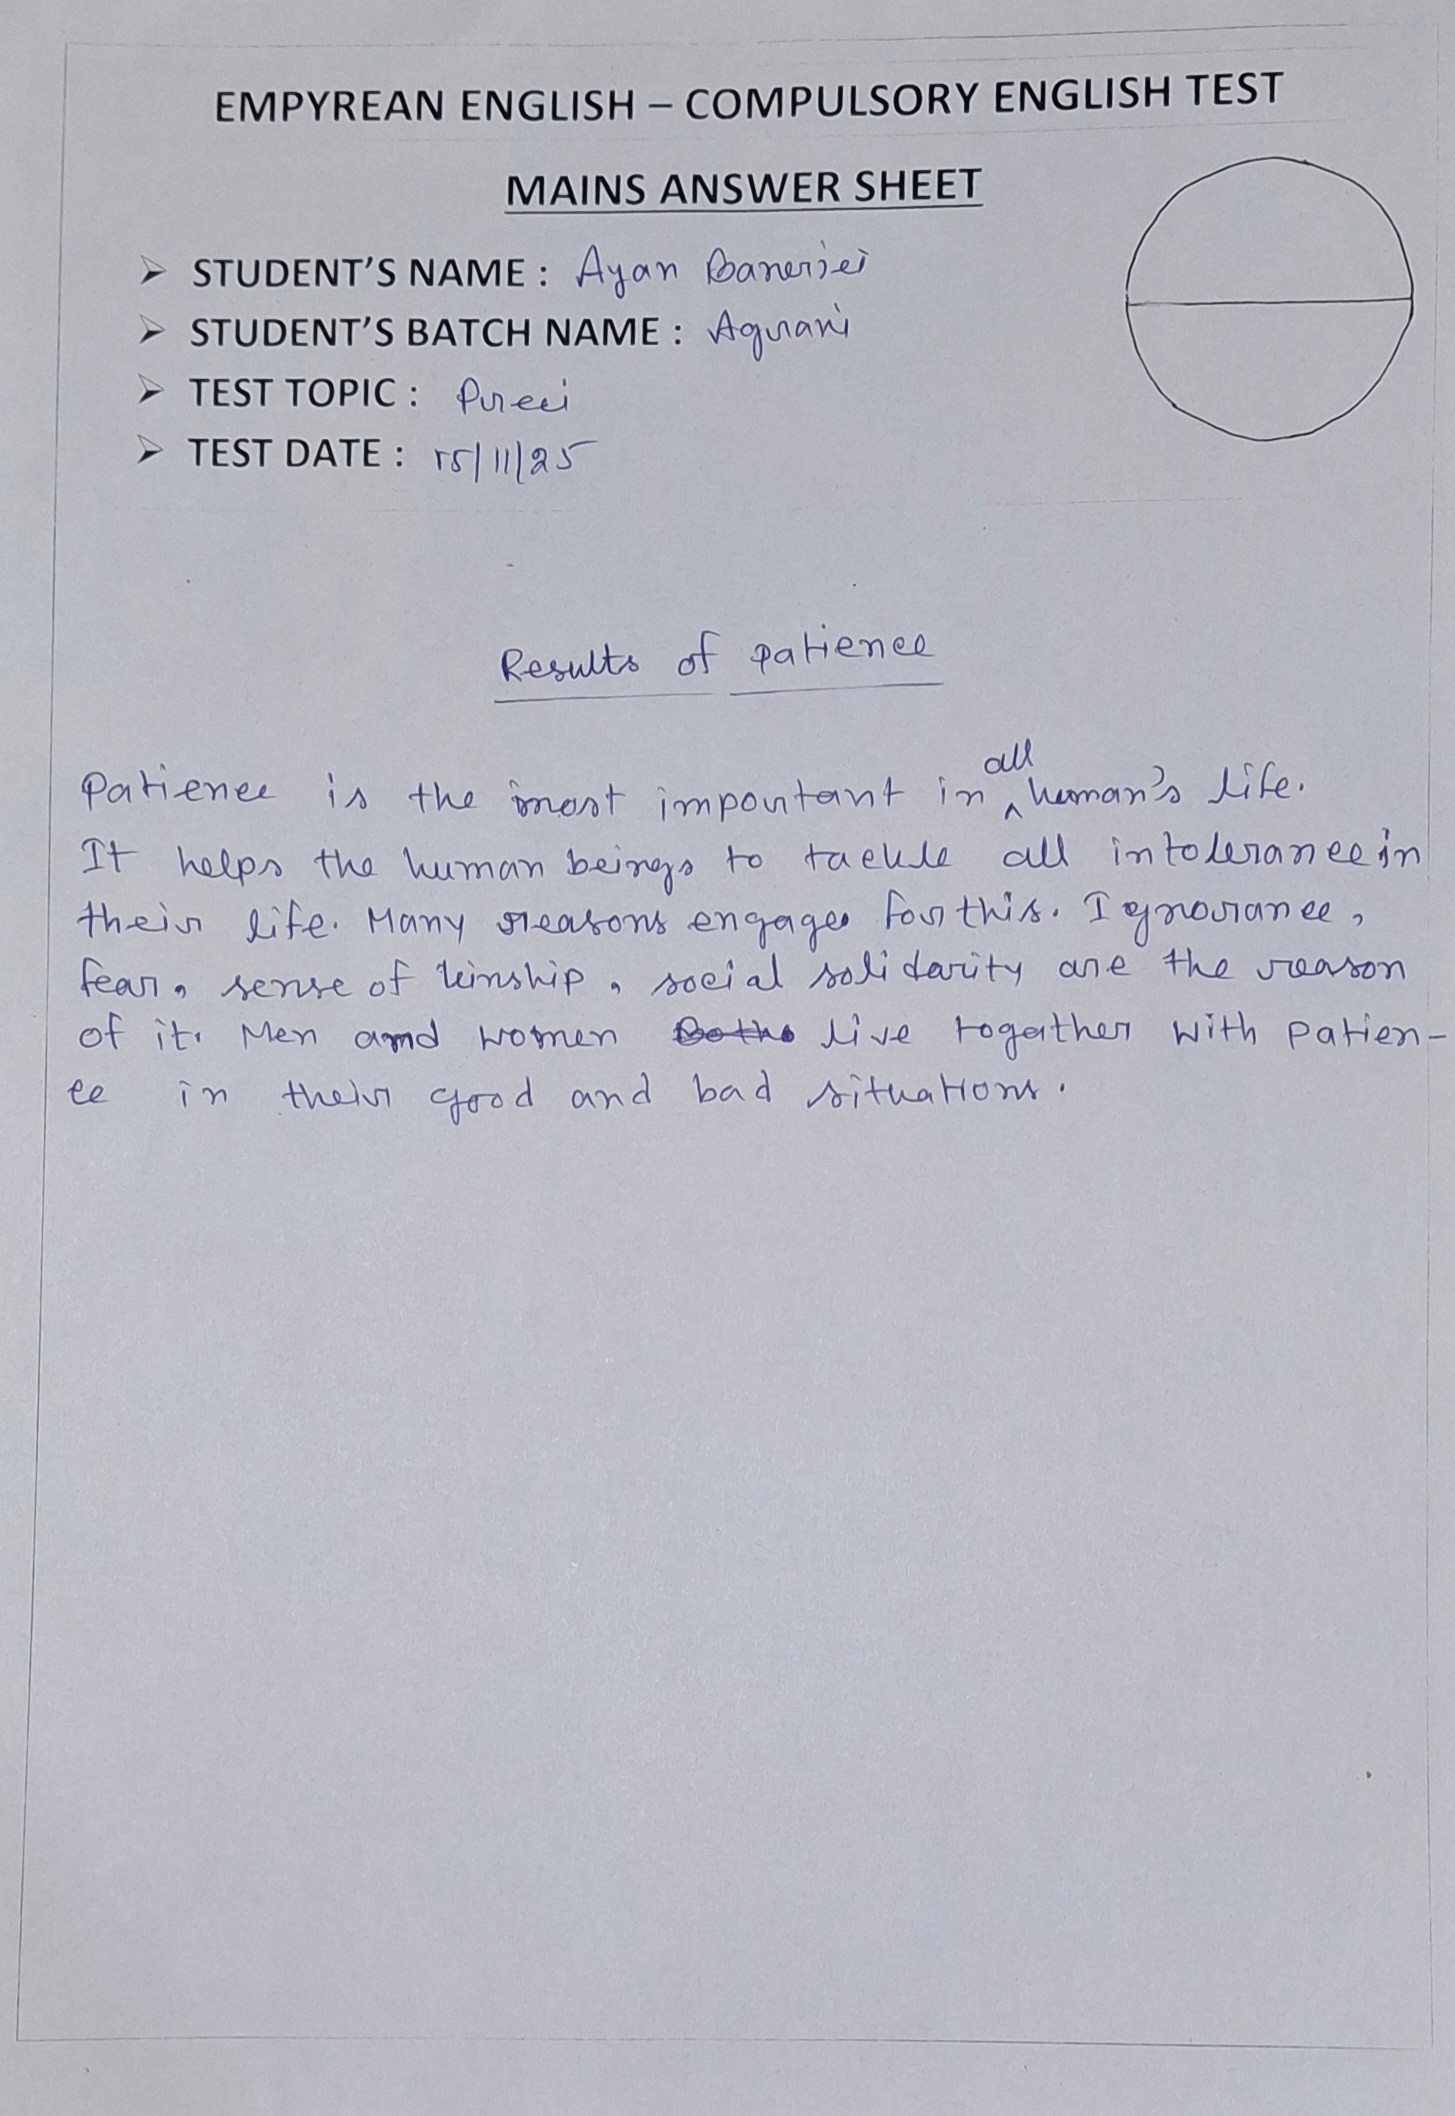 EMPYREAN ENGLISH – COMPULSORY ENGLISH TEST
MAINS ANSWER SHEET
➢ STUDENT'S NAME : Ayan Banerjei
➢ STUDENT'S BATCH NAME : Agrani
➢ TEST TOPIC : Preci
➢ TEST DATE : 15/11/25
Results of patience
Patience is the most important in ^all human's life.
It helps the human beings to tackle all intolerance in
their life. Many reasons engages for this. Ignorance,
fear, sense of kinship, social solidarity are the reason
of it. Men and women live together with patien-
ce in their good and bad situations.